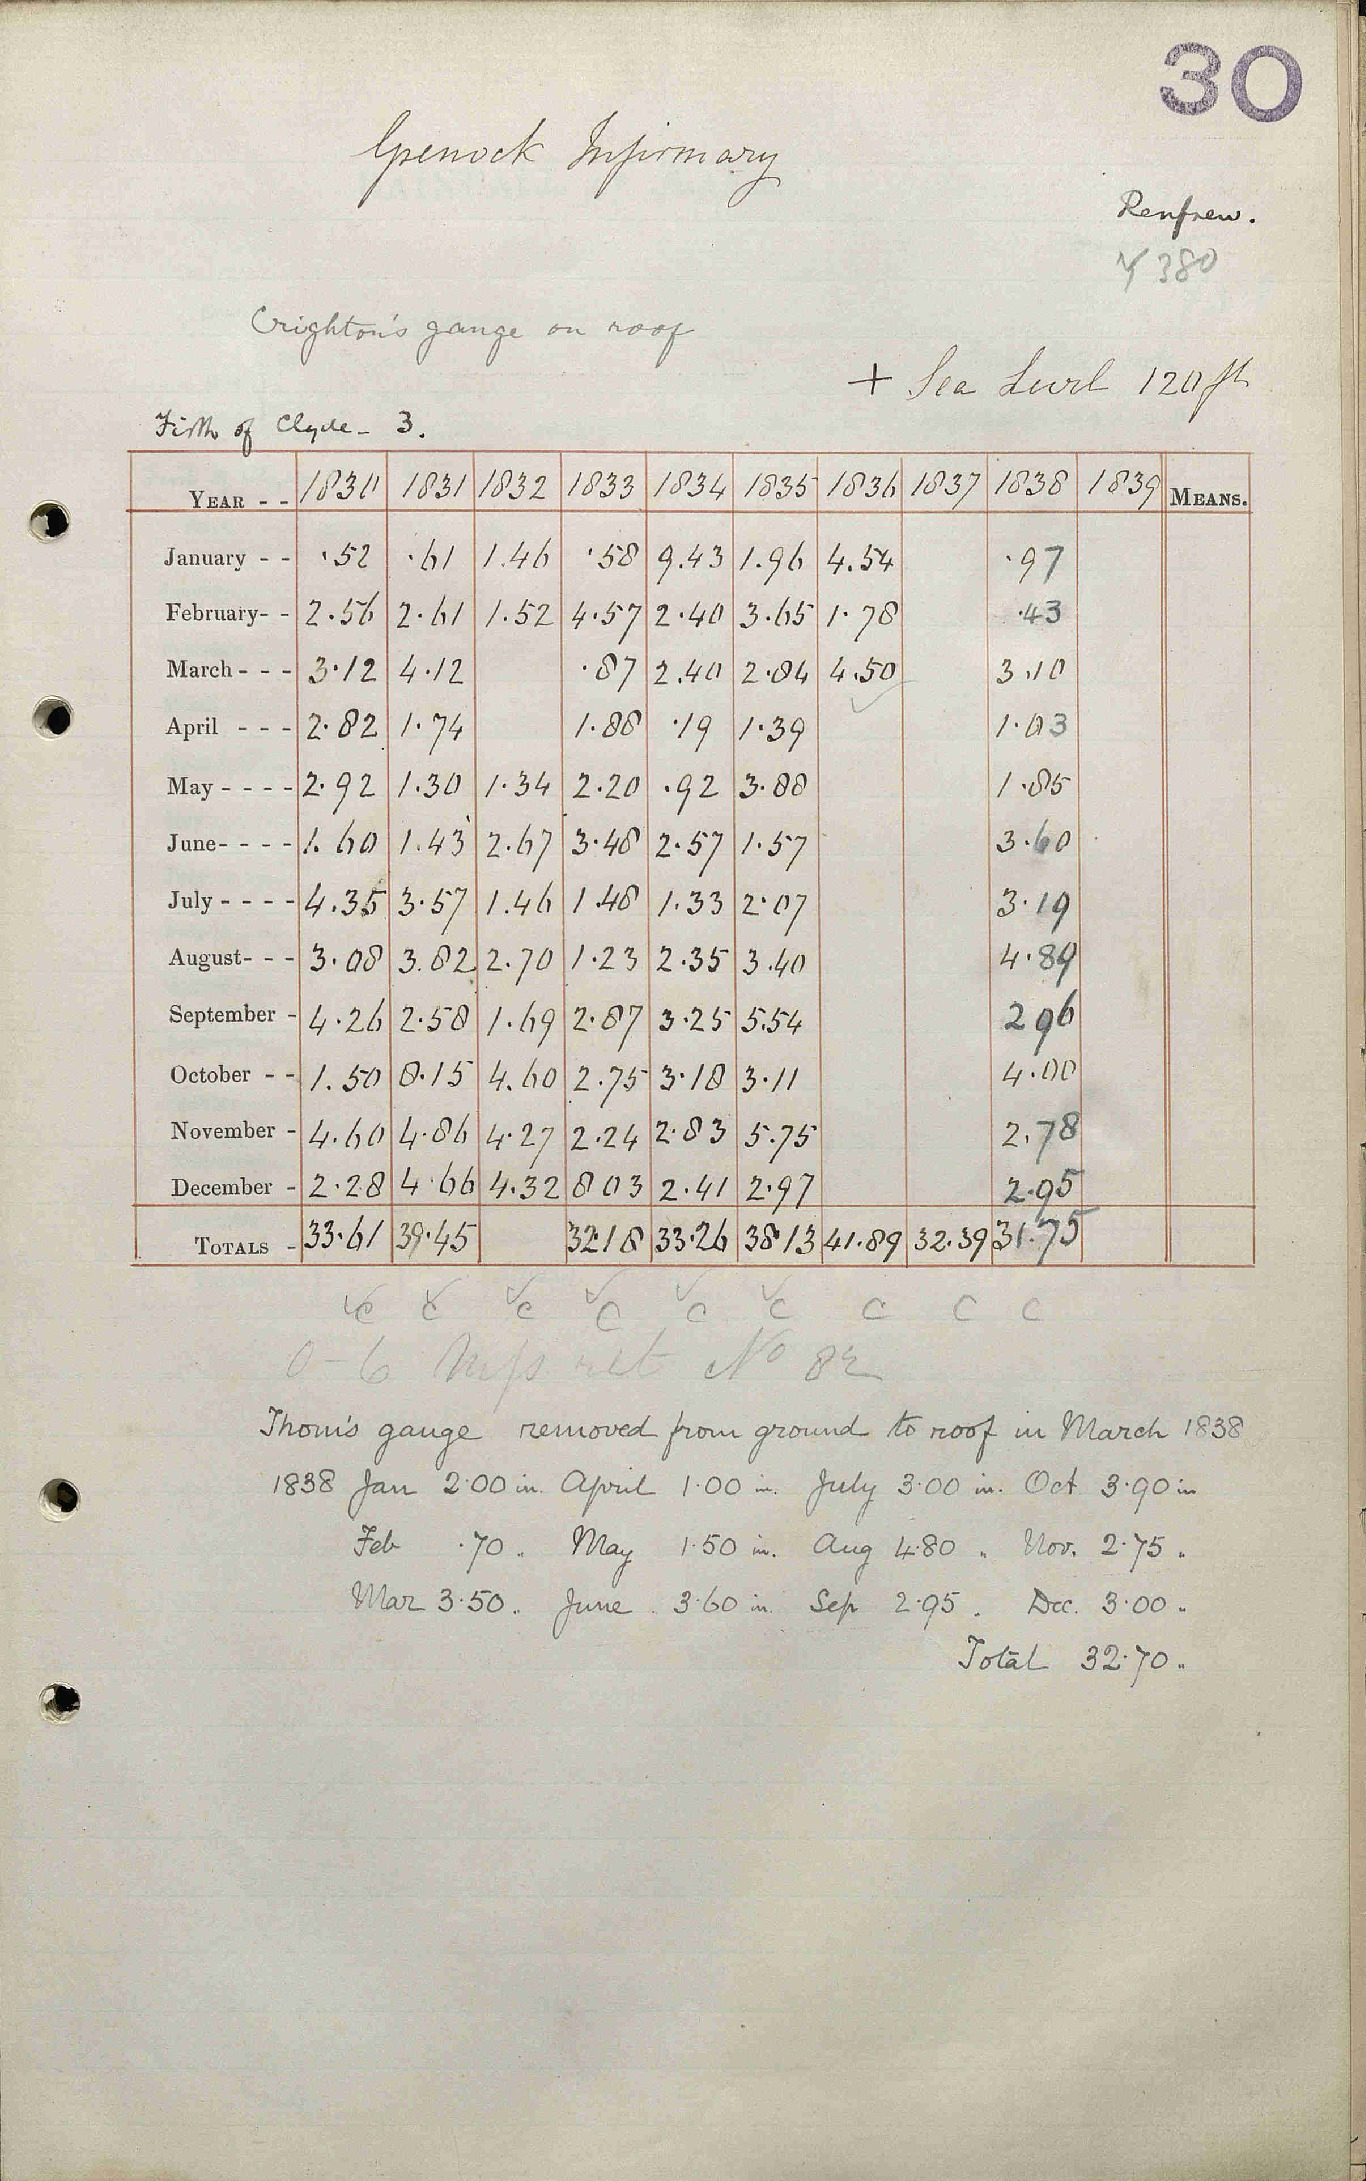 30
Greenock Infirmary
Renfrew.
380
Crighton's gauge on roof
+ Sea Level 120 ft
Firth of Clyde - 3.
YEAR - - 1830 1831 1832 1833 1834 1835 1836 1837 1838 1839 MEANS.
January - - .52 .61 1.46 .58 9.43 1.96 4.54 .97
February- - 2.56 2.61 1.52 4.57 2.40 3.65 1.78 .43
March - - - 3.12 4.12 .87 2.40 2.84 4.50 3.10
April - - - 2.82 1.74 1.88 .19 1.39 1.03
May - - - - 2.92 1.30 1.34 2.20 .92 3.88 1.85
June- - - - 1.60 1.43 2.67 3.48 2.57 1.57 3.60
July - - - - 4.35 3.57 1.46 1.48 1.33 2.07 3.19
August- - - 3.08 3.82 2.70 1.23 2.35 3.40 4.89
September - 4.26 2.58 1.69 2.87 3.25 5.54 2 96
October - - 1.50 8.15 4.60 2.75 3.18 3.11 4.00
November - 4.60 4.86 4.27 2.24 2.83 5.75 2.78
December - 2.28 4.66 4.32 8 03 2.41 2.97 2.95
TOTALS - 33.61 39.45 32 18 33.26 38 13 41.89 32.39 31.75
c c c c c c c c c
0-6 ret No 82
Thom's gauge removed from ground to roof in March 1838
1838 Jan 2.00 in. April 1.00 in. July 3.00 in. Oct 3.90 in
Feb .70 " May 1.50 in. Aug 4.80 " Nov. 2.75 "
Mar 3.50 " June 3.60 in. Sep 2.95 " Dec. 3.00 "
Total 32.70 "